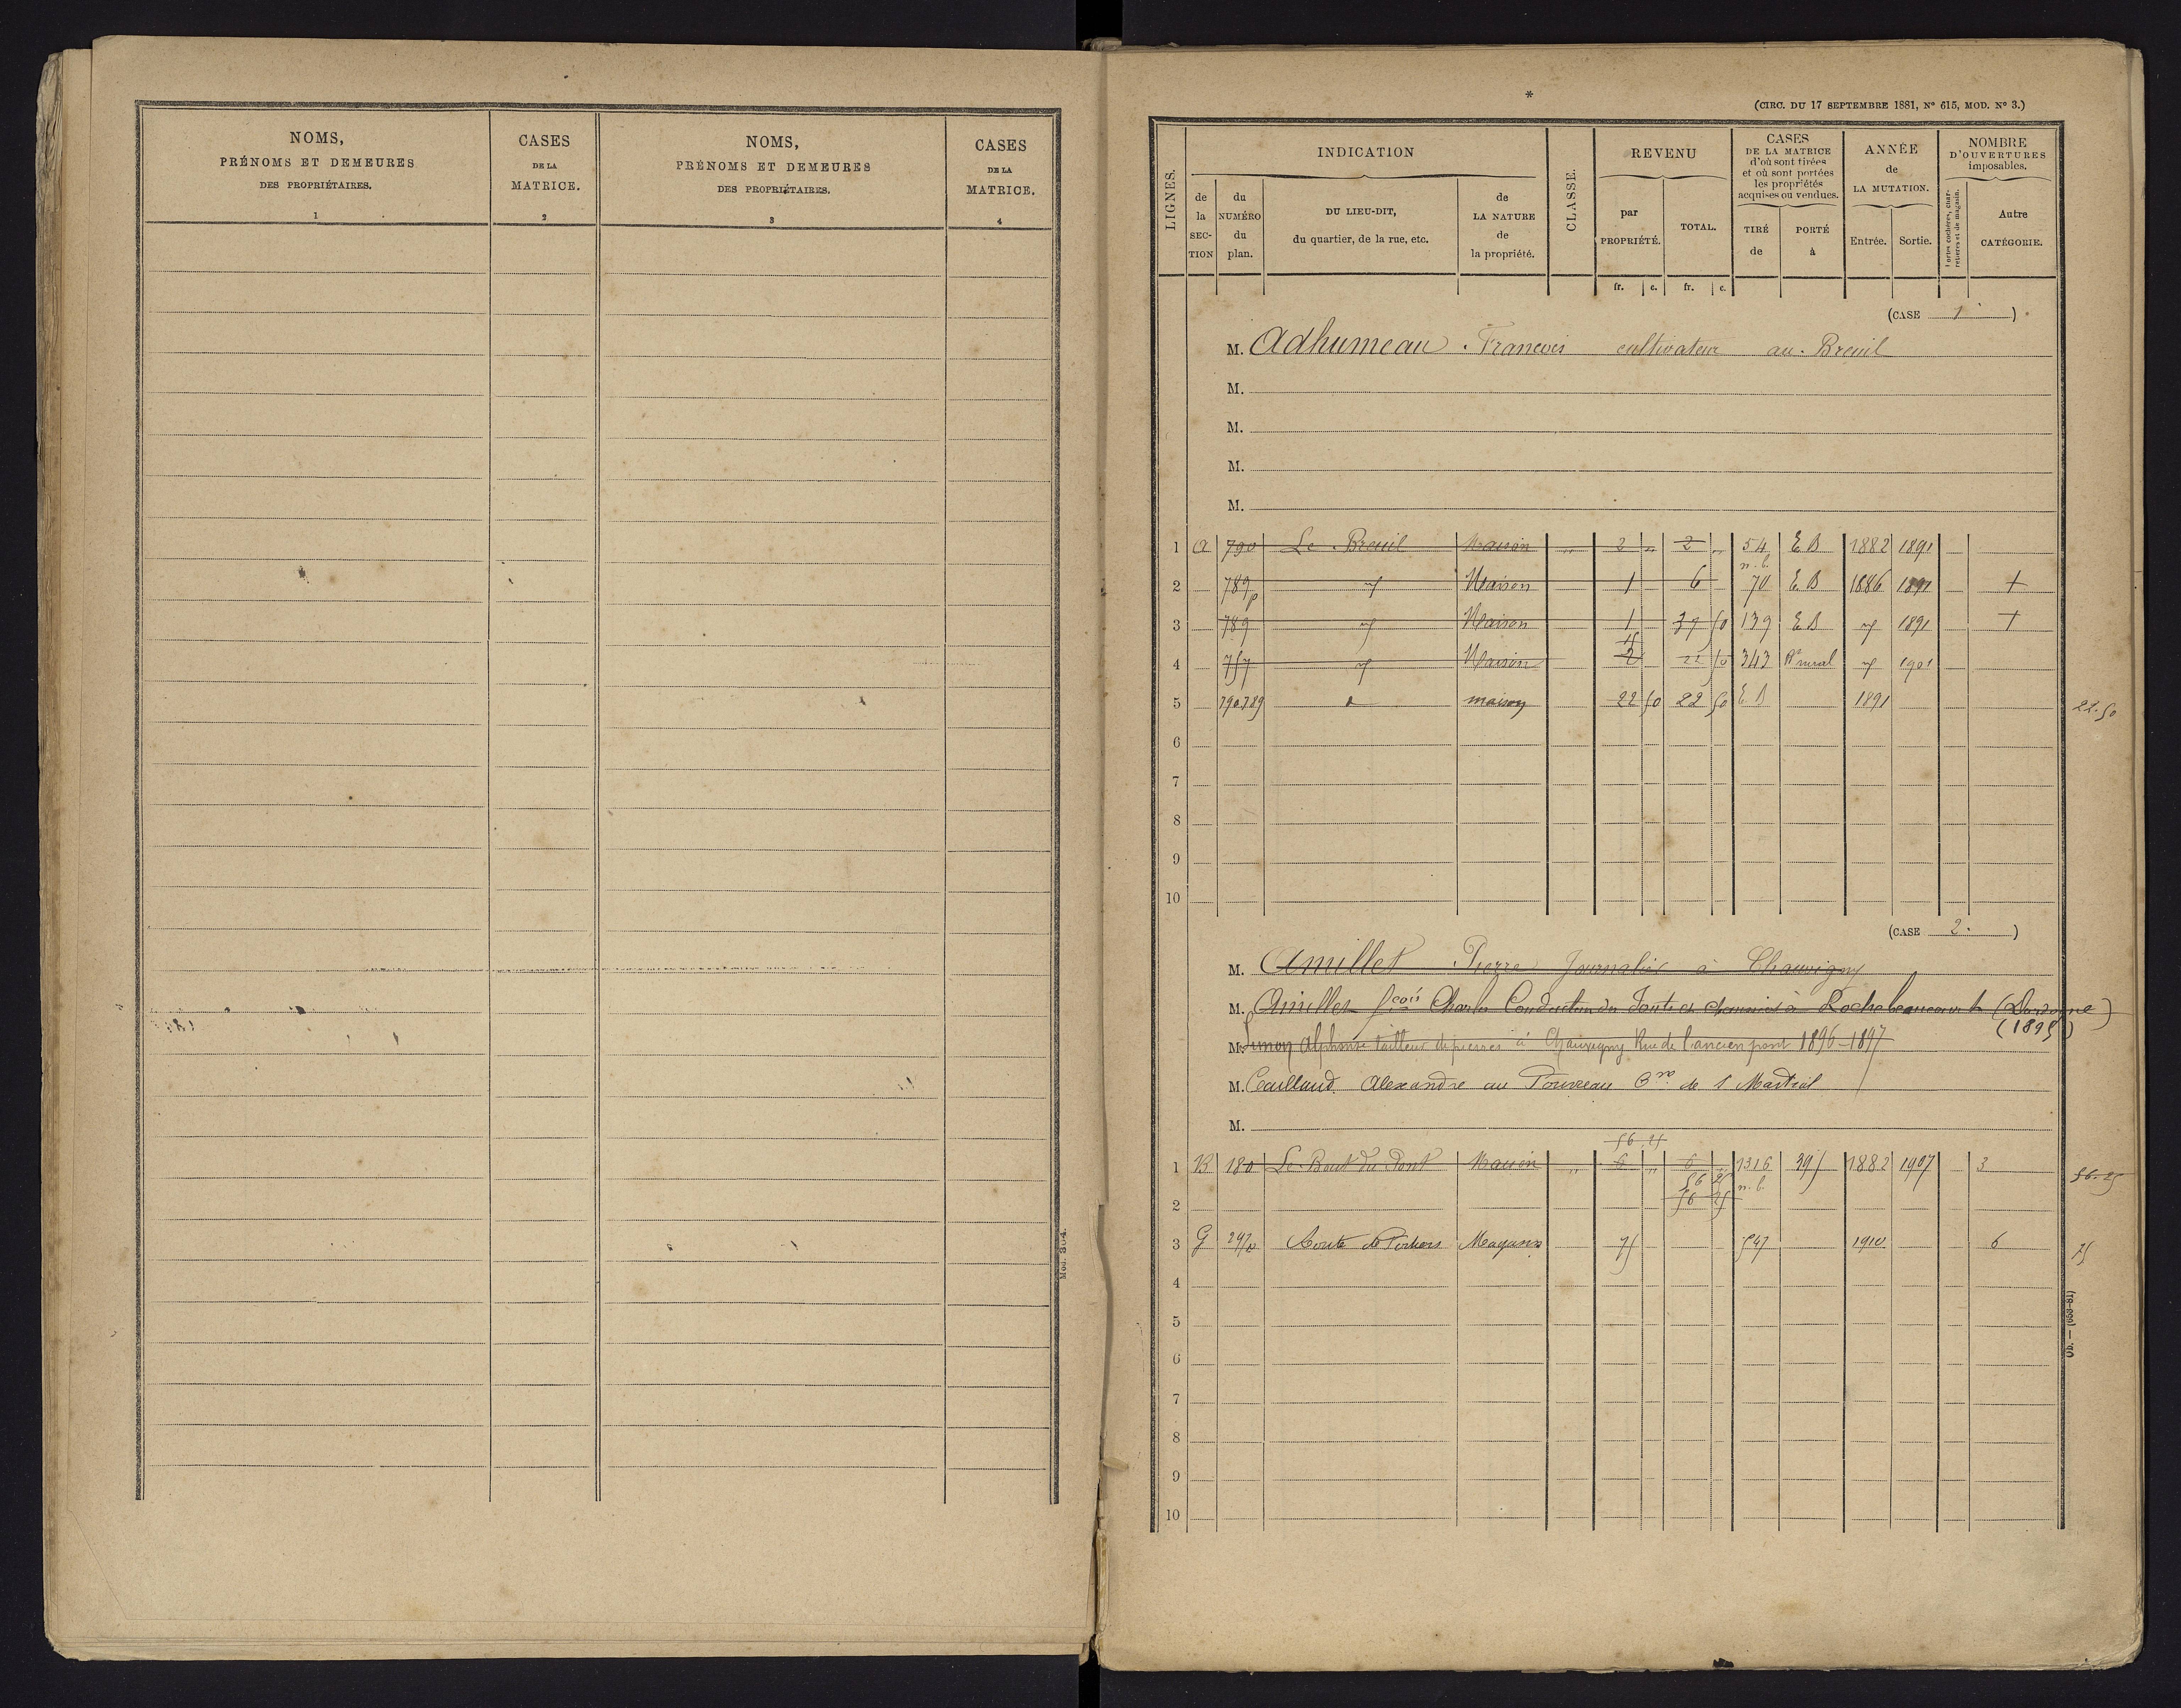 NOMS,
PRÉNOMS ET DEMEURES
DES PROPRIÉTAIRES.
1
CASES
DE LA
MATRICE.
2
NOMS,
PRÉNOMS ET DEMEURES
DES PROPRIÉTAIRES.
3
CASES
DE LA
MATRICE.
4
Mod. 304.
*
(CIRC. DU 17 SEPTEMBRE 1881, N° 615, MOD. N° 3.)
LIGNES.
INDICATION
de la SECTION
du NUMÉRO du plan.
DU LIEU-DIT,
du quartier, de la rue, etc.
de LA NATURE de la propriété.
CLASSE.
REVENU
par PROPRIÉTÉ.
TOTAL.
CASES
DE LA MATRICE
d'où sont tirées
et où sont portées
les propriétés
acquises ou vendues.
TIRÉ de
PORTÉ à
ANNÉE
de
LA MUTATION.
Entrée.
Sortie.
NOMBRE
D'OUVERTURES
imposables.
Portes cochères, charretières et de magasin.
Autre
CATÉGORIE.
fr. c. fr. c.
(CASE 1 )
M. Adhumeau François cultivateur au Breuil
M.
M.
M.
M.
1 A 790 Le Breuil Maison " 2 " 2 " 54 E B 1882 1891
n. b.
2 789 p Maison 1 6 70 E. B 1886 1891 +
3 789 Maison 1 37 50 139 E B 1891 +
15
4 757 Maison 2 22 50 343 rural 1901
5 790.789 maison 22 50 22 50 E B 1891 22.50
6
7
8
9
10
(CASE 2. )
M. Amillet Pierre Journalier à Chauvigny
M. Amillet fcois Charles Conducteur des Ponts et chaussées à Rochebeaucourt (Dordogne)
(1895)
M. Simon Alphonse tailleur de pierres à Chauvigny Rue de l'ancien pont 1896-1897
M. Caillaud Alexandre au Poureau Cne de St Martial
M.
56 25
1 B 180 Le Bout du Pont Maison " 6 " 6 " 1316 395 1882 1907 3 56.25
56 25 n. b.
2 56 25
3 G 297p Route de Poitiers Magasin 75 547 1910 6 75
4
5
6
7
8
9
10
Ob. — (653-81)